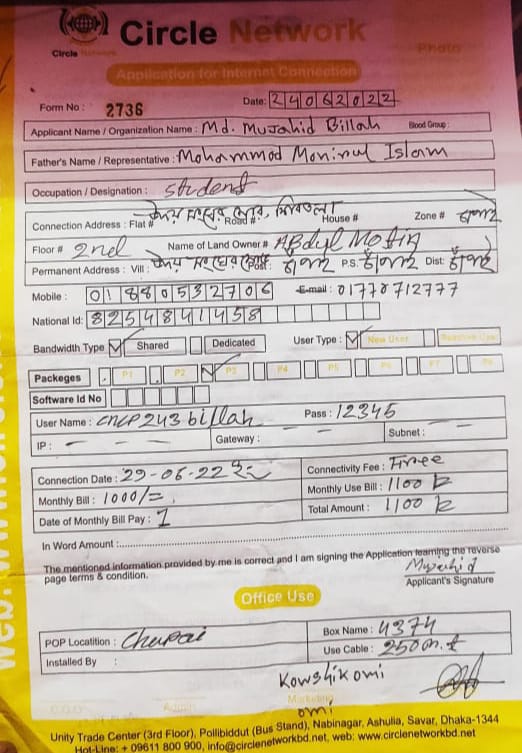 Circle Network
Circle Network
Photo
Application for Internet Connection
Form No : 2736 Date: 24062022
Applicant Name / Organization Name : Md. Mujahid Billah Blood Group :
Father's Name / Representative : Mohammod Monirul Islam
Occupation / Designation : student
Connection Address : Flat # Road # House # Zone #
Floor # 2nd Name of Land Owner # Abdyl Motin
Permanent Address : Vill : Post: P.S: Dist:
Mobile : 01880532706 E-mail : 01770712777
National Id: 8254841458
Bandwidth Type ✓ Shared Dedicated User Type : ✓ New User Reactive User
Packeges P1 P2 ✓ P3 P4 P5 P6 P7 P8
Software Id No
User Name : CNCP243billah Pass : 12345
IP : - - - Gateway : - Subnet : -
Connection Date : 29-06-22 Connectivity Fee : Free
Monthly Bill : 1000/= Monthly Use Bill : 1100
Date of Monthly Bill Pay : 1 Total Amount : 1100
In Word Amount :
The mentioned information provided by me is correct and I am signing the Application learning the reverse
page terms & condition. Mujahid
Applicant's Signature
Office Use
POP Locatition : Chapai Box Name : 4374
Installed By : Use Cable : 250m.t
Kowshik omi
Admin Marketing
omi
Unity Trade Center (3rd Floor), Pollibiddut (Bus Stand), Nabinagar, Ashulia, Savar, Dhaka-1344
Hot-Line: + 09611 800 900, info@circlenetworkbd.net, web: www.circlenetworkbd.net